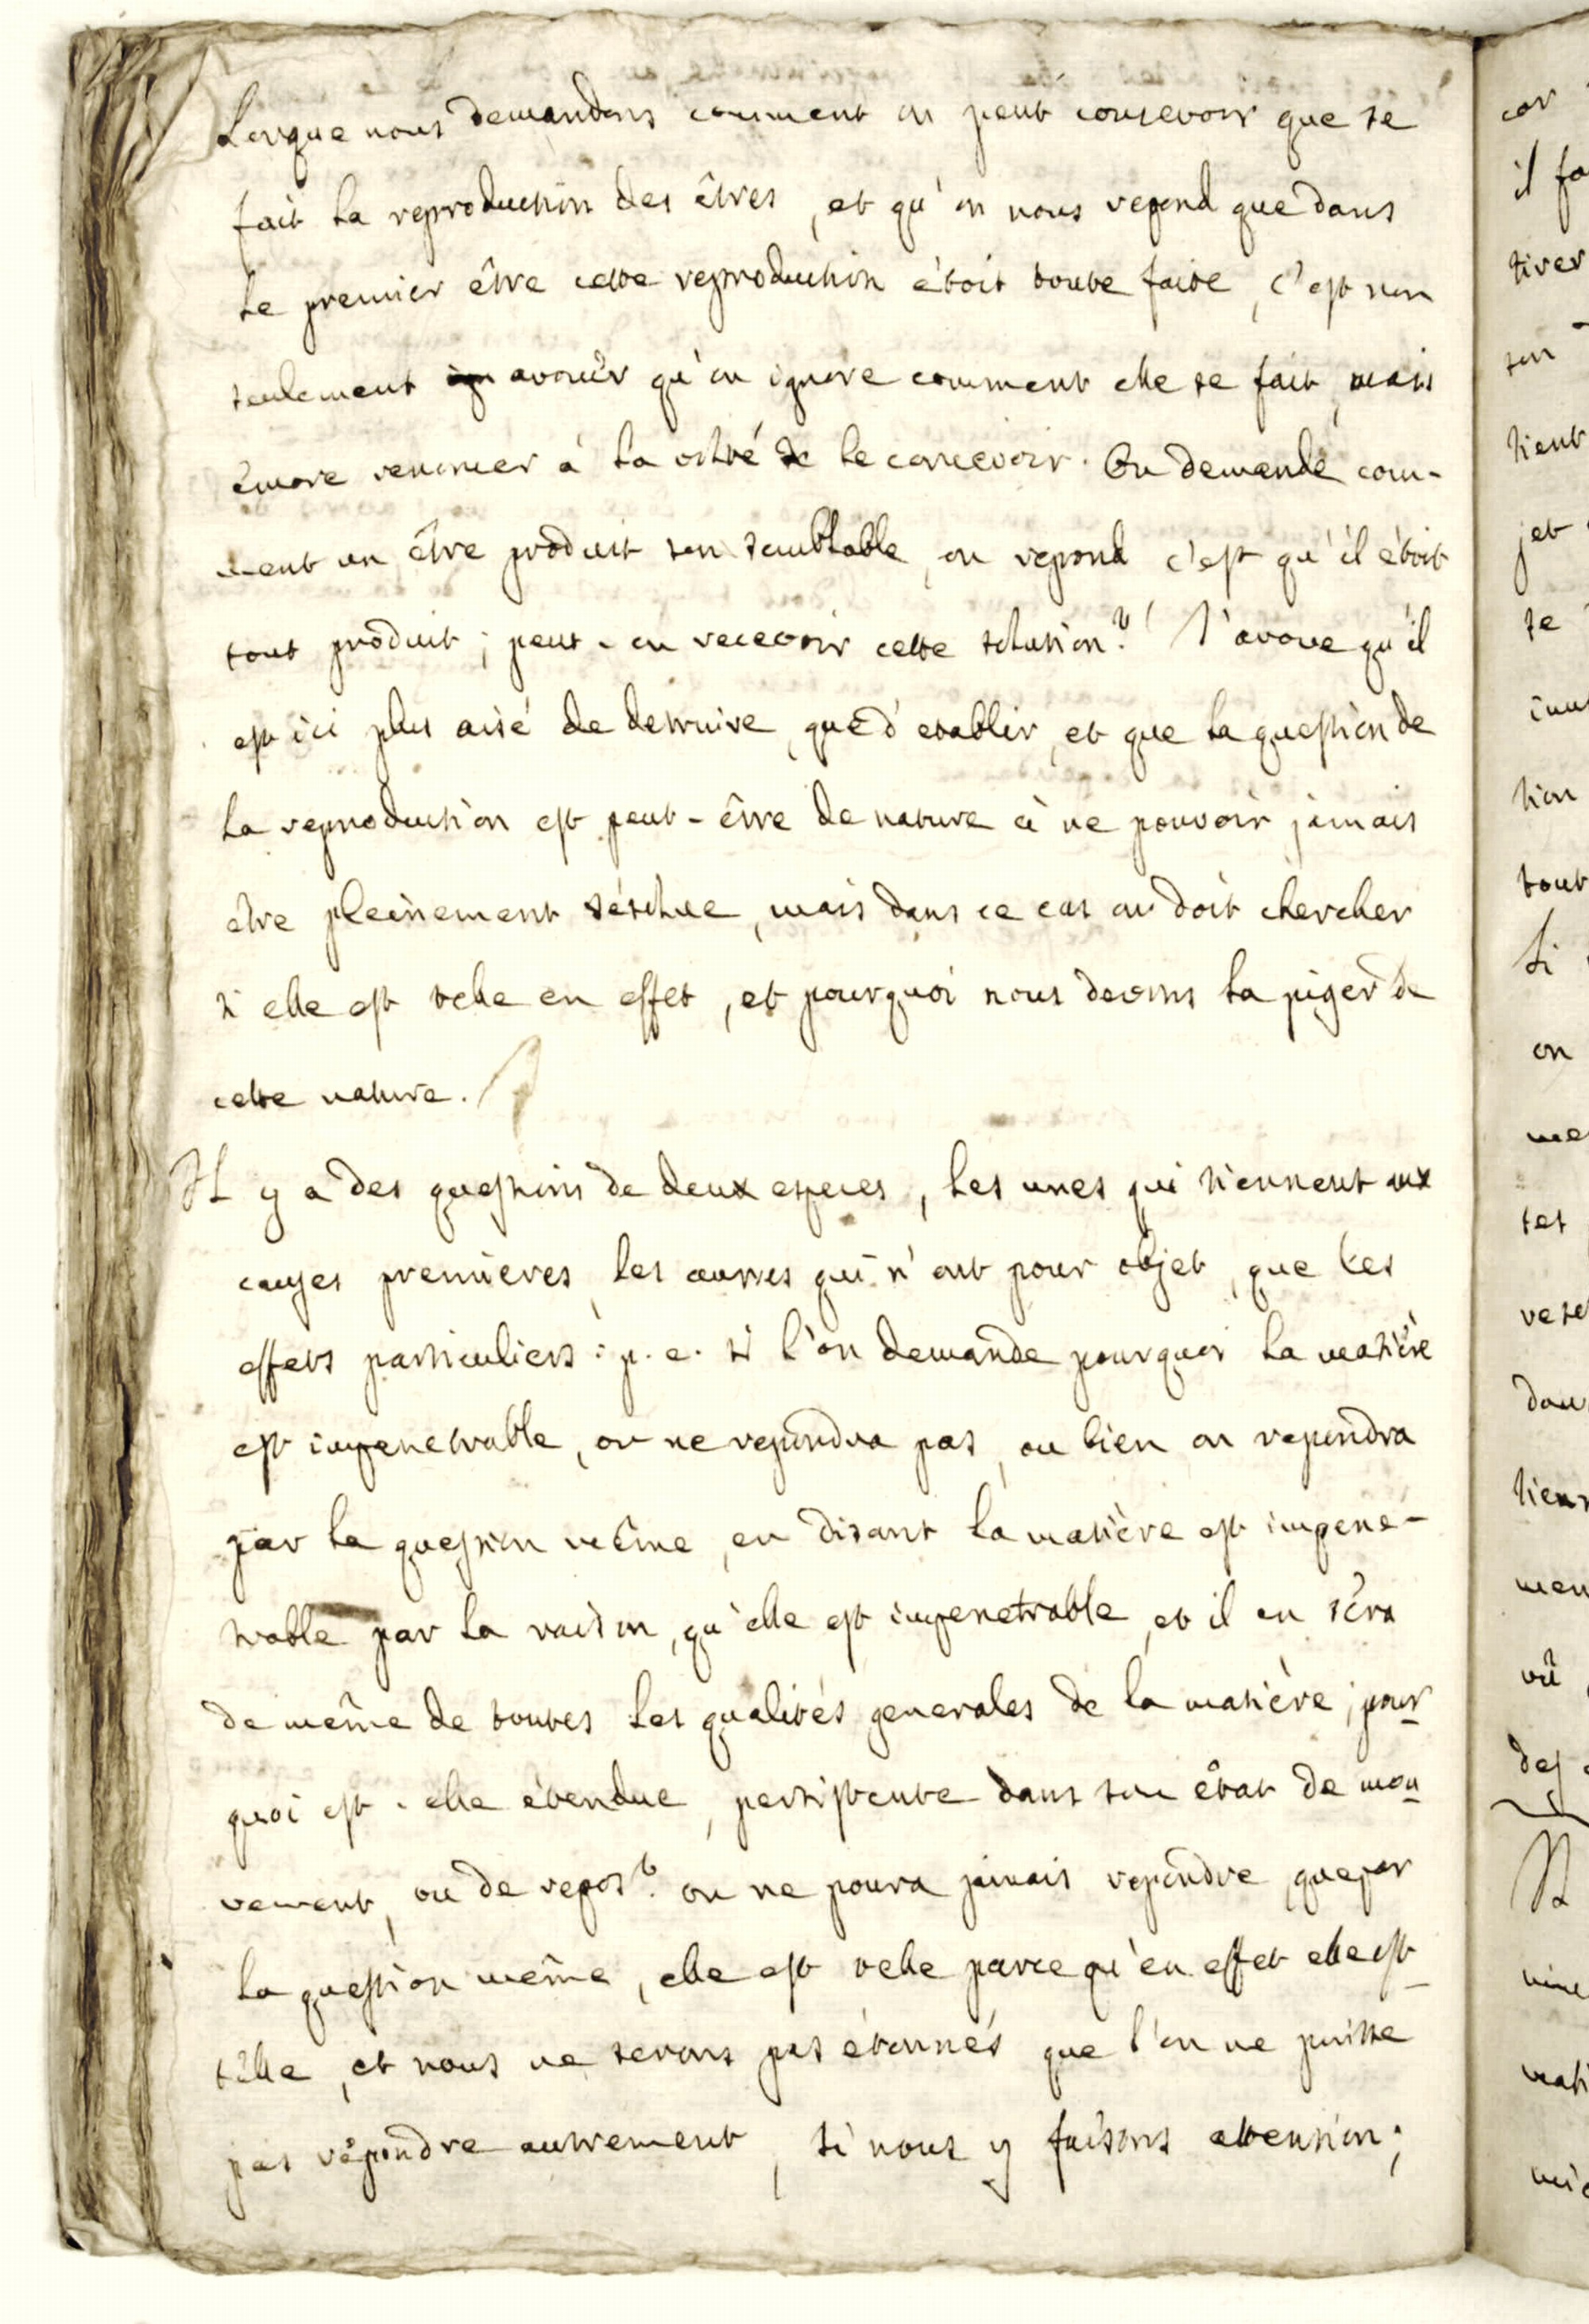 Lorque nous demandons comment on peut consevoir que se
fait la reproduction des êtres, et qu'on nous repond que dans
le premier être cette reproduction étoit toute faite, c'est non
seulement avouër qu'on ignore comment elle se fait, mais
encore renoncer à la volonté de le concevoir. On demande com-
ment un être produit son semblable, on repond c'est qu'il étoit
tout produit; peut-on recevoir cette solution? J'avoue qu'il
est ici plus aisé de detruire, que d'etablir, et que la question de
la reproduction est peut-être de nature à ne pouvoir jamais
etre pleinement résolue, mais dans ce cas on doit chercher
si elle est telle en effet, et pourquoi nous devons la juger de
cette nature.
Il y a des questions de deux especes, les unes qui tiennent aux
causes premières, les autres qui n'ont pour objet, que les
effets particuliers: p. e. si l'on demande pourquoi la matière
est impenetrable, on ne repondra pas, ou bien on repondra
par la question même, en disant la matière est impene-
trable par la raison, qu'elle est impenetrable, et il en sera
de même de toutes les qualités generales de la matière; pour
quoi est-elle étendue, persistente dans son état de mou
vement, ou de repos? on ne poura jamais repondre, que par
la question même, elle est telle parce qu'en effet elle est
telle, et nous ne serons pas étonnés que l'on ne puisse
pas répondre autrement, si nous y faisons attention;
car
il fa
tirer
son
tient
jet
se
tion
tout
Si
on
me
ses
dan
tien
men
vû
des